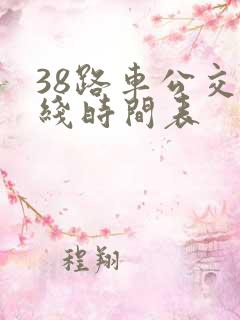 38路車公交
綫時間表
程翔